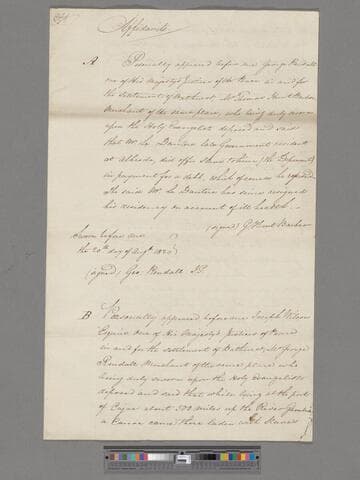 Affidavits
A Personally appeared before me George Rendall
one of His Majesty's Justices of the Peace in and for
the Settlement of Bathurst, Mr Thomas Hunt Barber
Merchant of the same place, who being duly sworn
upon the Holy Evangelist deposed and said
that Mr Le Dantzec late Government resident
at Albreda, did offer Slaves to him (the Deponent)
in payment for a debt, which of course he refused
The said Mr Le Dantzec has since resigned
his residency on account of ill health.
(signed) T. Hunt Barber
Sworn before me
the 20th day of Augt 182
(signed) Geo. Rendall J.P.
B Personally appeared before me Joseph Wilson
Esquire one of His Majesty's Justices of Peace
in and for the settlement of Bathurst, Mr George
Rendall Merchant of the same place who
being duly sworn upon the Holy Evangelist
deposed and said that whilst lying at the port
of about 300 miles up the River Gambia
a Canoe came there laden with Slaves